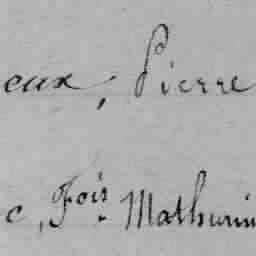 eux, Pierre
c, Fois. Mathurin